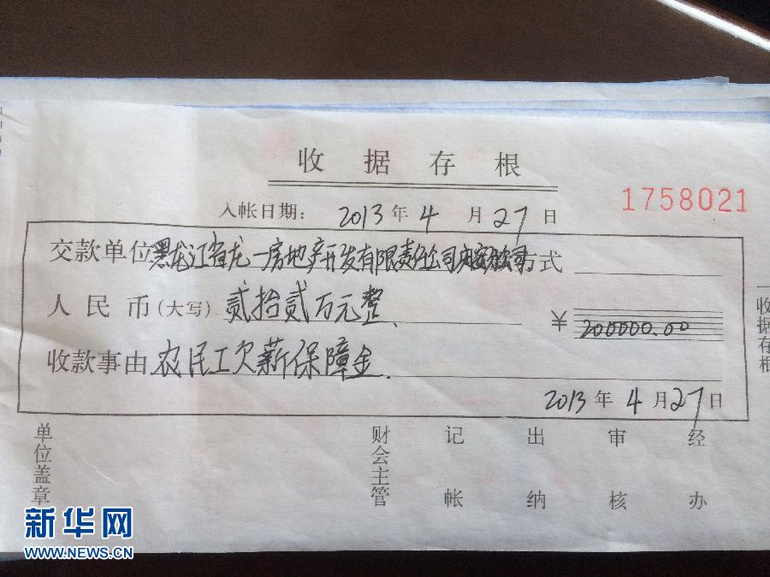 收据存根
1758021
入帐日期： 2013 年 4 月 27 日
交款单位 黑龙江省龙一房地产开发有限责任公司 方式
人民币(大写) 贰拾贰万元整
¥ 200000.00
收款事由 农民工欠薪保障金
2013 年 4 月 27 日
收据存根
单位盖章
财会主管
记帐
出纳
审核
经办
新华网
WWW.NEWS.CN